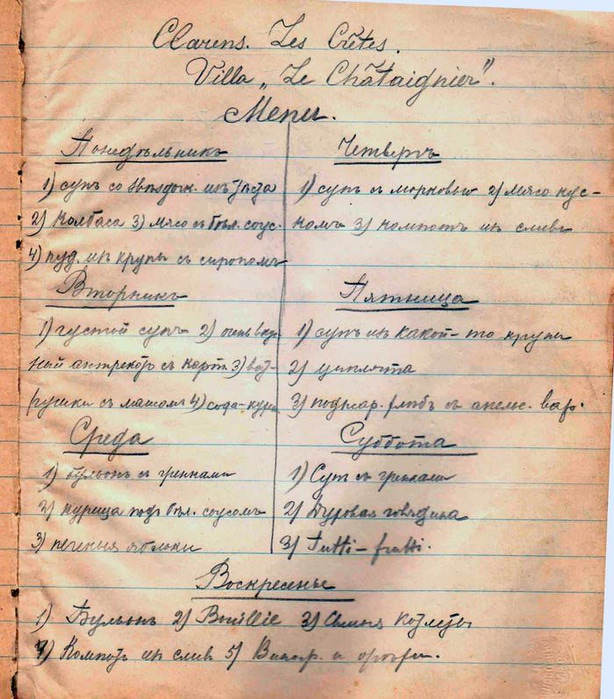 Clarens. Les Crêtes.
Villa „Le Châtaignier".
Menu.
Понедѣльникъ
1) супъ со звѣздочк. изъ
2) Колбаса 3) мясо съ бѣл. соус.
4) пуд. изъ крупы съ сиропомъ
Вторникъ
1) густой супъ 2) очень вкус-
ный антрекотъ съ карт. 3)
съ 4)
Среда
1) бульонъ съ гренками
2) курица подъ бѣл. соусомъ
3) печеныя яблоки
Четвергъ
1) супъ съ морковью 2) мясо кус-
комъ 3) компотъ изъ сливъ
Пятница
1) супъ изъ какой-то крупы
2) цыплята
3) поджар. хлѣбъ съ апельс. вар.
Суббота
1) Супъ съ гренками
2) говядина
3) Tutti-frutti.
Воскресенье
1) Бульонъ 2) Bouillie 3) котлеты
4) Компотъ из слив 5) Виногр. и